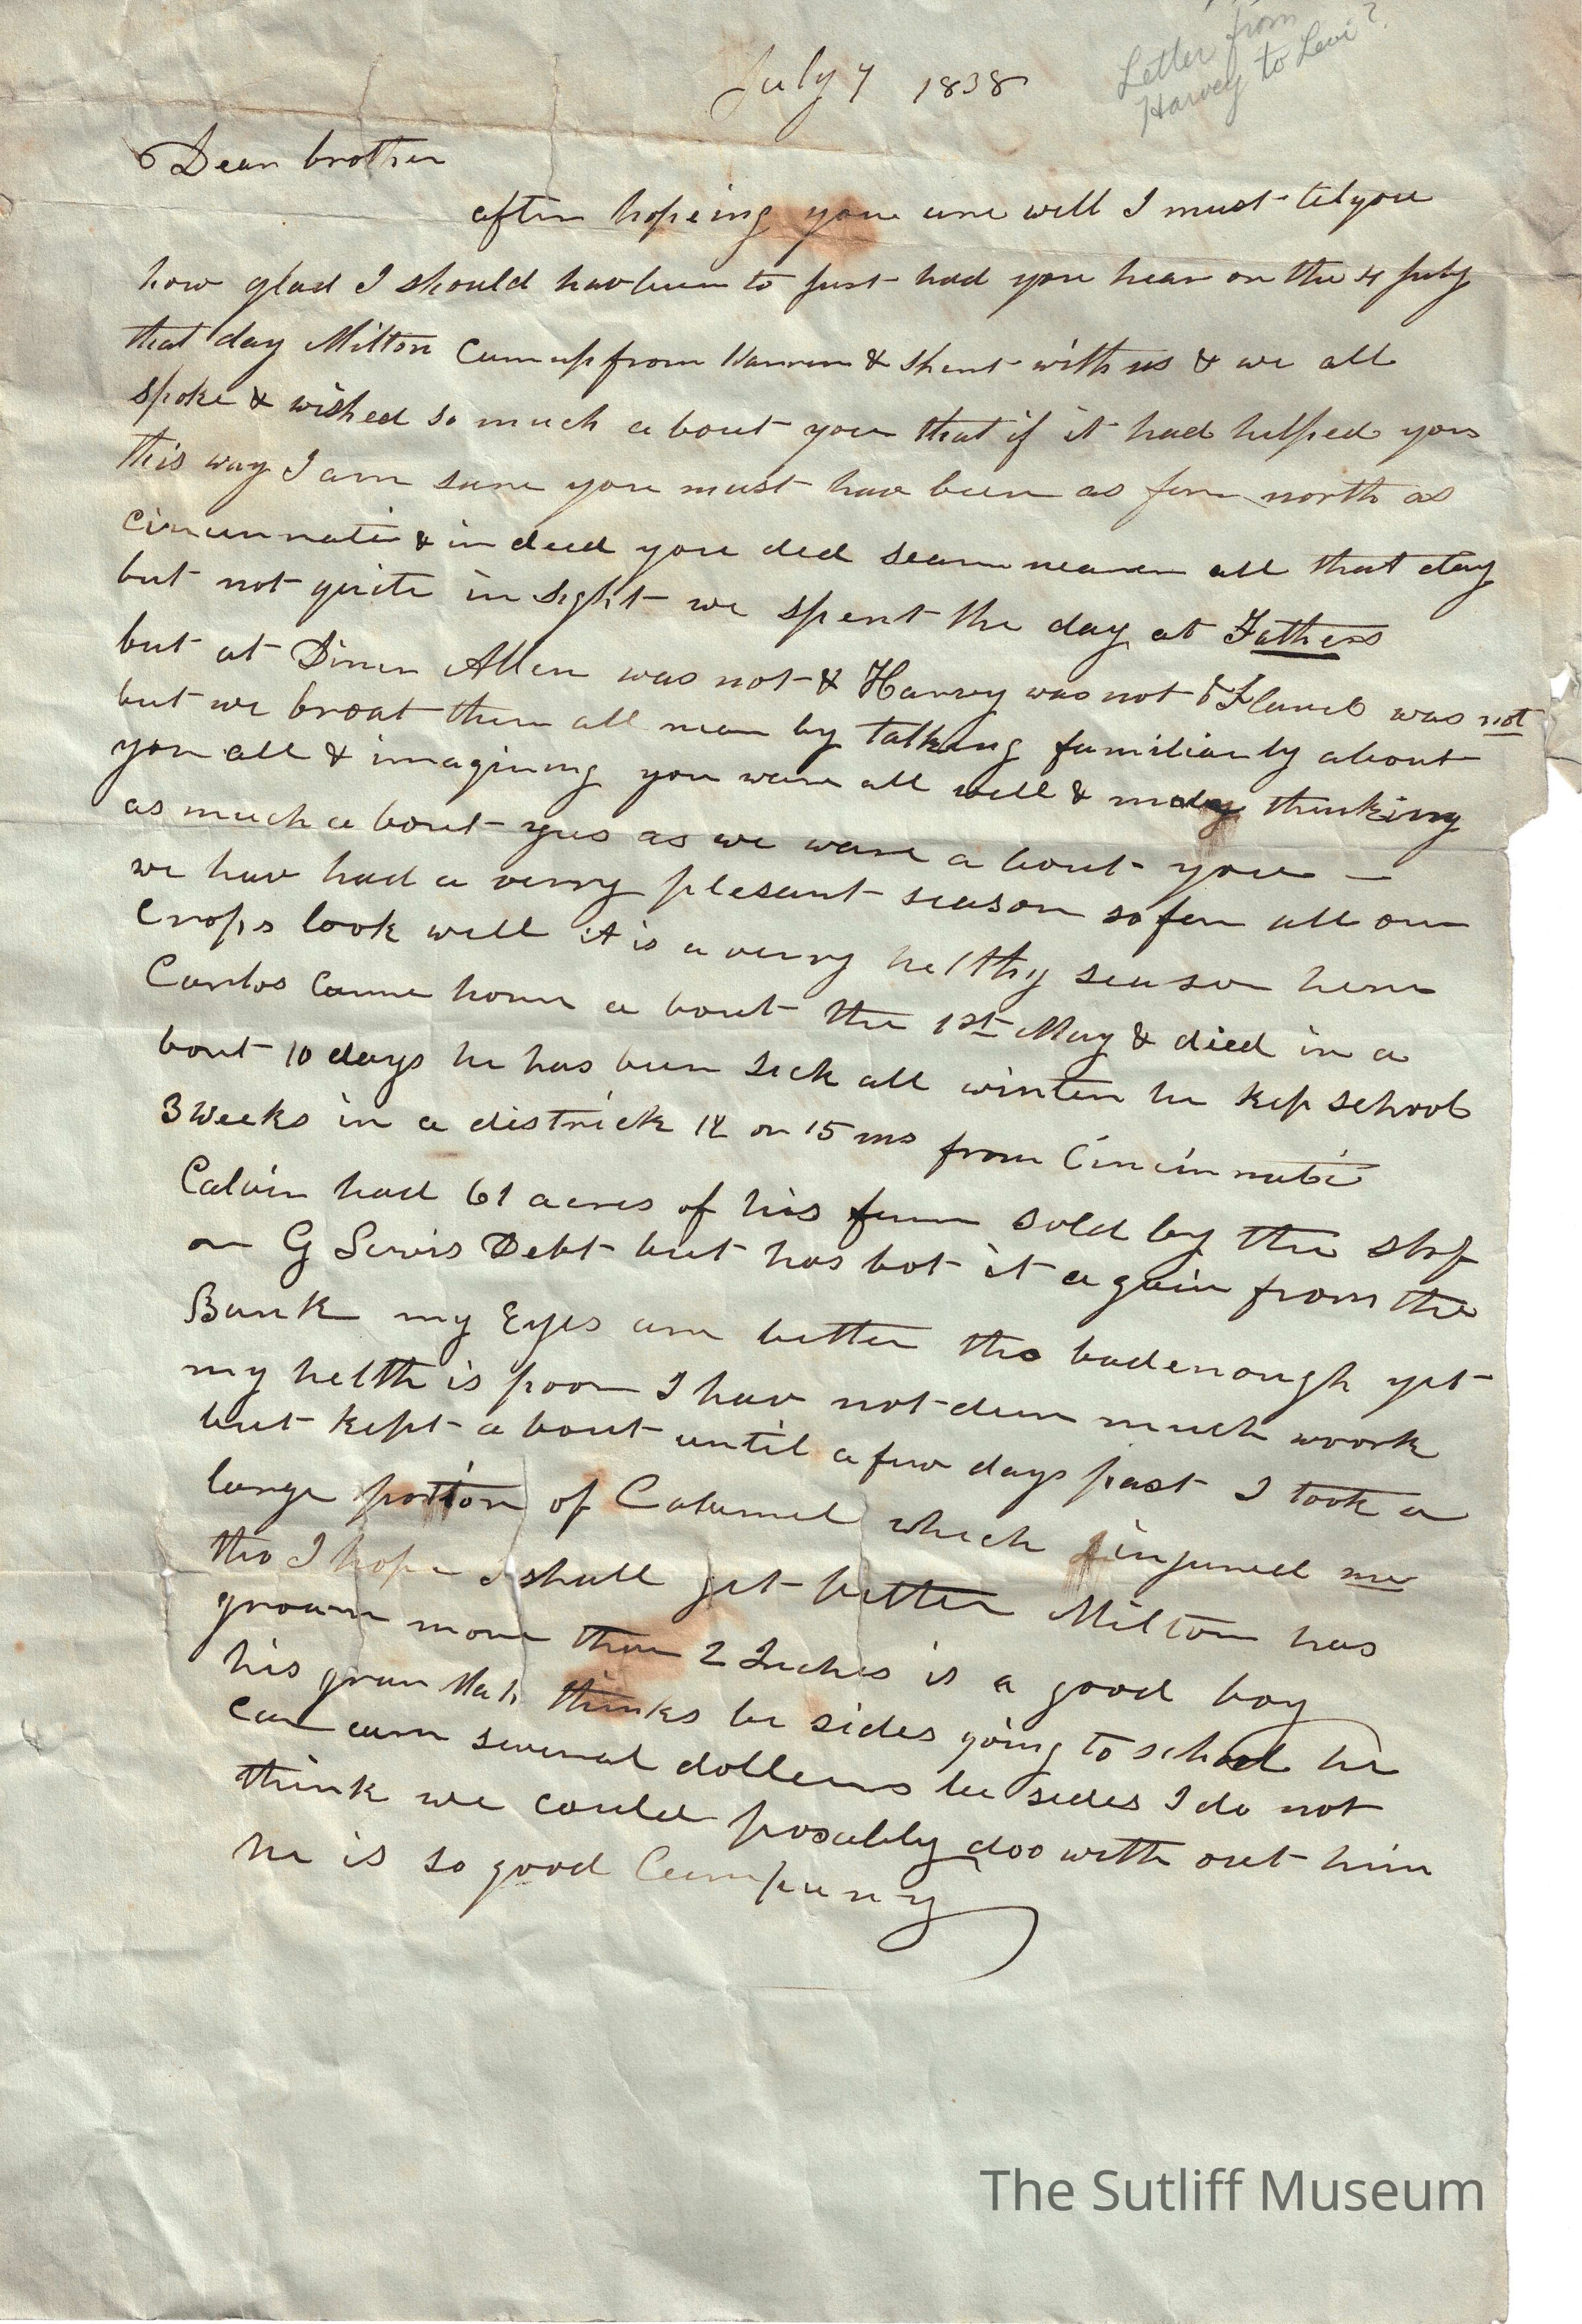 Letter from
Harvey to Levi?
July 7 1838
Dear brother
after hopeing you are well I must tel you
how glad I should hav been to just had you hear on the 4 July
that day Milton cum up from Warren & spent with us & we all
spoke & wished so much a bout you that if it had helped you
this way I am sure you must hav been as far north as
Cincinnati & in deed you did seam nearer all that day
but not quite in sight we spent the day at Fathers
but at Diner Allen was not & Harvey was not & Flavel was not
but we broat them all near by talking familiarly about
you all & imagining you ware all well & thinking
as much a bout yus as we ware a bout you —
we hav had a verry plesant season so far all our
Crops look well it is a verry helthy season here
Carlos Came home a bout the 1st May & died in a
bout 10 days he has been sick all winter he kep school
3 weeks in a districk 12 or 15 ms from Cincinnati
Calvin had 61 acres of his farm sold by the shrf
on G Lewis Debt but has bot it again from the
Bank my Eyes are better tho bad enough yet
my helth is poor I hav not dun much woork
but kept a bout until a few days past I took a
large portion of Calumel which injured me
tho I hope I shall get better Milton has
grown more than 2 Inches is a good boy
his gran Mah thinks be sides going to school he
can earn several dollers be sides I do not
think we could posably doo with out him
he is so good Cumpany
The Sutliff Museum